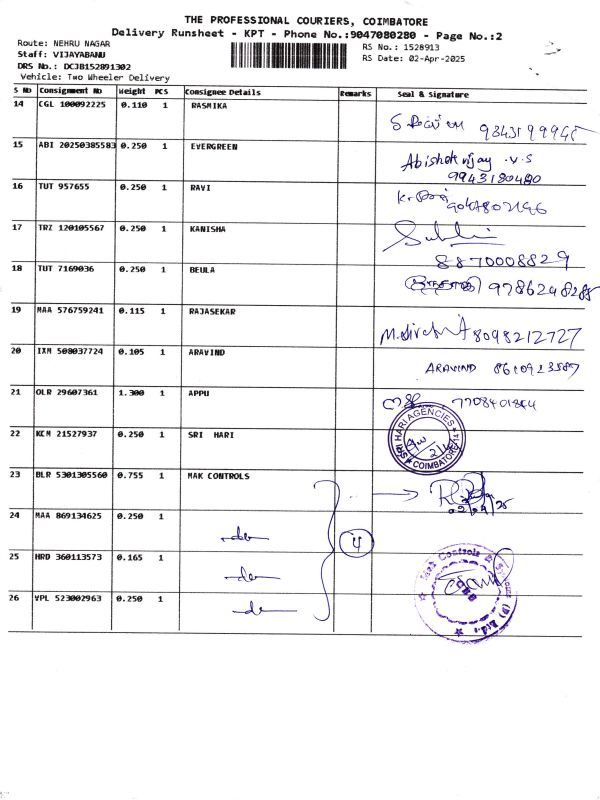 THE PROFESSIONAL COURIERS, COIMBATORE
Delivery Runsheet - KPT - Phone No.:9047080280 - Page No.:2
Route: NEHRU NAGAR
Staff: VIJAYABANU
DRS No.: DCJB152891302
Vehicle: Two Wheeler Delivery
RS No.: 1528913
RS Date: 02-Apr-2025
S No Consignment No Weight PCS Consignee Details Remarks Seal & Signature
14 CGL 100092225 0.110 1 RASMIKA
15 ABI 20250385583 0.250 1 EVERGREEN Abishek vijay .V.S
9943180480
16 TUT 957655 0.250 1 RAVI
17 TRZ 120105567 0.250 1 KANISHA
8870008829
18 TUT 7169036 0.250 1 BEULA
19 MAA 576759241 0.115 1 RAJASEKAR 8098212727
20 IXM 508037724 0.105 1 ARAVIND ARAVIND
21 OLR 29607361 1.300 1 APPU
22 KCM 21527937 0.250 1 SRI HARI SRI HARI AGENCIES COIMBATORE
23 BLR 5301305560 0.755 1 MAK CONTROLS
02/04/25
24 MAA 869134625 0.250 1 -do-
4
25 HRD 360113573 0.165 1 -do-
26 VPL 523002963 0.250 1 -do-